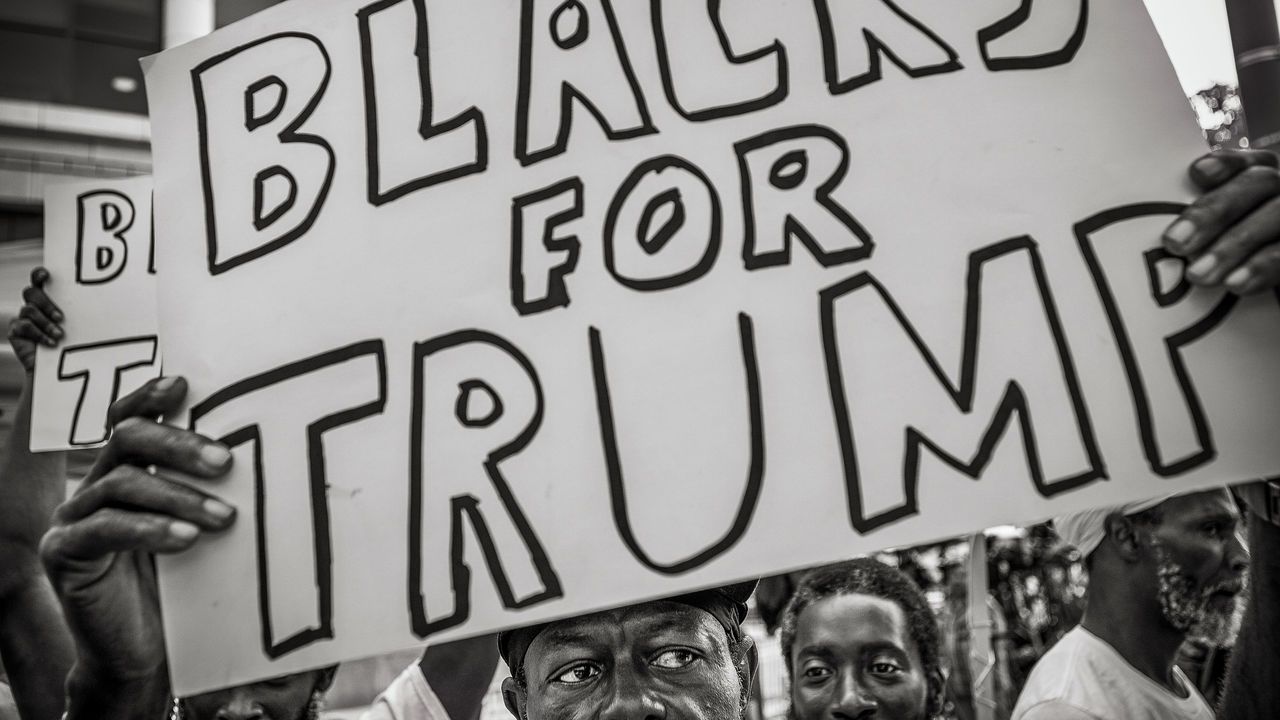 BLACKS
FOR
TRUMP
B
T